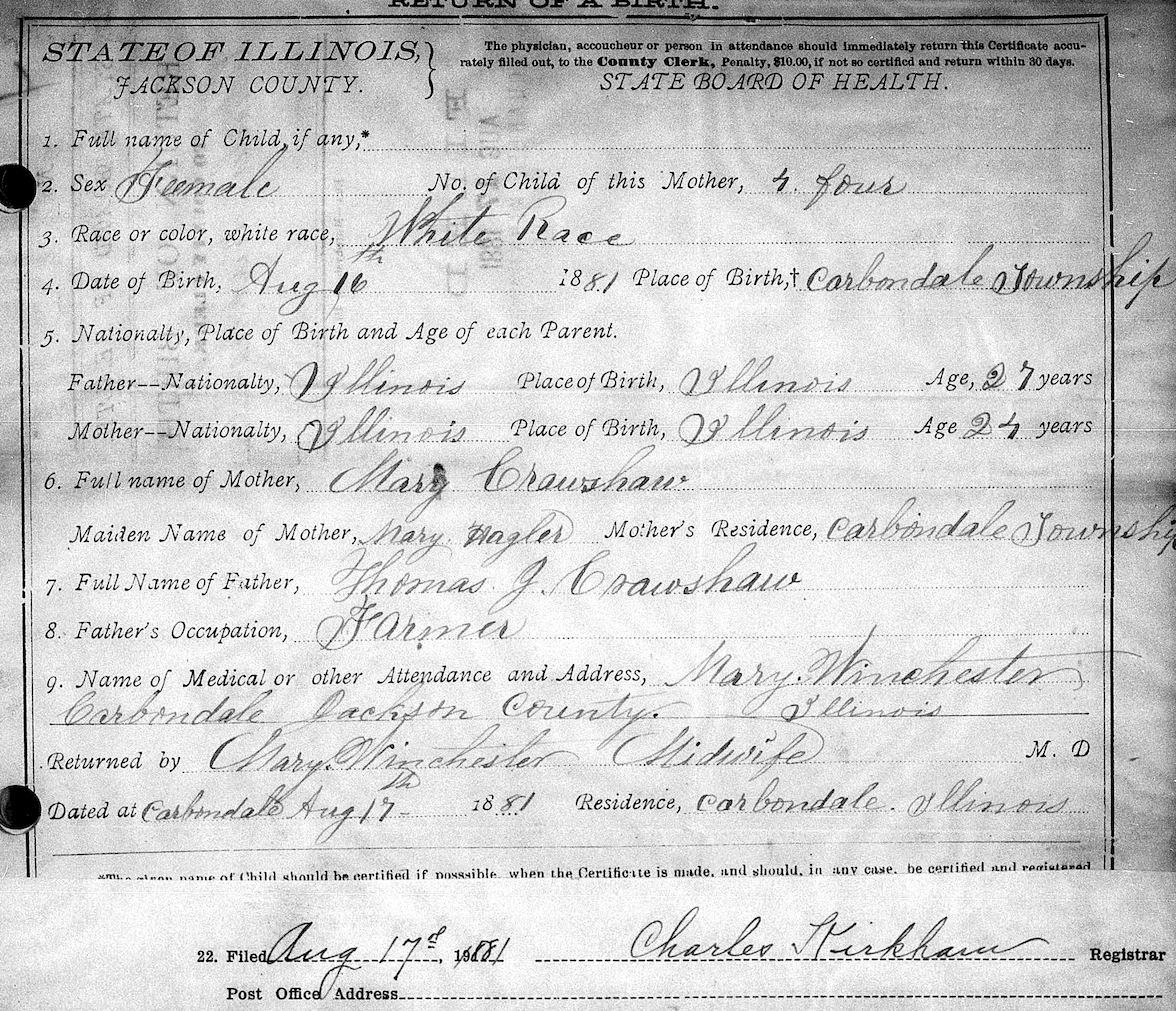 RETURN OF A BIRTH.
STATE OF ILLINOIS, } The physician, accoucheur or person in attendance should immediately return this Certificate accu-
rately filled out, to the County Clerk, Penalty, $10.00, if not so certified and return within 30 days.
JACKSON COUNTY. STATE BOARD OF HEALTH.
1. Full name of Child, if any,*
2. Sex Feemale No. of Child of this Mother, 4. four
3. Race or color, white race, White Race
4. Date of Birth, Aug 16th 1881 Place of Birth,† Carbondale Township
5. Nationalty, Place of Birth and Age of each Parent.
Father--Nationalty, Illinois Place of Birth, Illinois Age, 27 years
Mother--Nationalty, Illinois Place of Birth, Illinois Age 24 years
6. Full name of Mother, Mary Crawshaw
Maiden Name of Mother, Mary Hagler Mother's Residence, Carbondale Township
7. Full Name of Father, Thomas J. Crawshaw
8. Father's Occupation, Farmer
9. Name of Medical or other Attendance and Address, Mary. Winchester
Carbondale Jackson County. Illinois
Returned by Mary. Winchester Midwife M. D
Dated at Carbondale Aug 17th- 1881 Residence, Carbondale. Illinois
*The given name of Child should be certified if posssible, when the Certificate is made, and should, in any case, be certified and registered
22. Filed Aug 17d, 1881 Charles Kirkham Registrar
Post Office Address